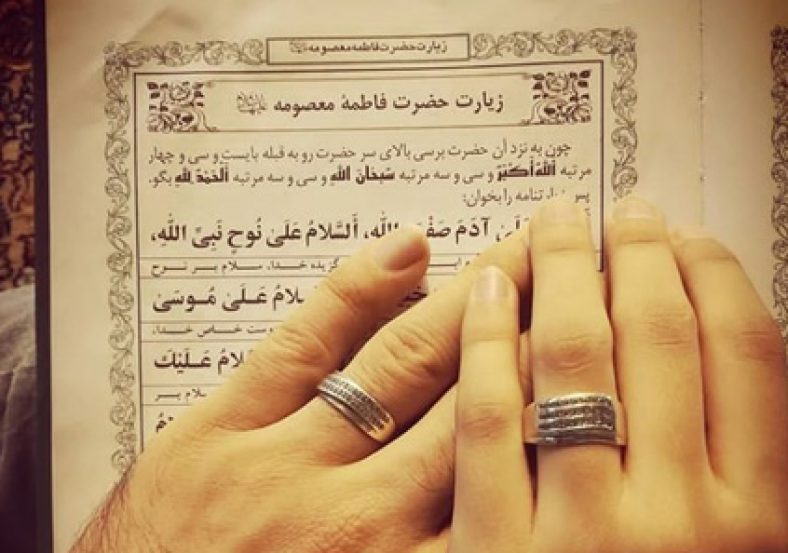 زیارت حضرت فاطمه معصومه
زیارت حضرت فاطمهٔ معصومه علیهاالسلام
چون به نزد آن حضرت برسی بالای سر حضرت رو به قبله بایست و سی و چهار
مرتبه اَللّٰهُ اَکْبَرُ و سی و سه مرتبه سُبْحانَ اللهِ و سی و سه مرتبه اَلْحَمْدُ لِلّٰهِ بگو،
پس زیارتنامه را بخوان:
عَلیٰ آدَمَ صَفْوَةِ اللهِ، أَلسَّلامُ عَلیٰ نُوحٍ نَبِیِّ اللهِ،
گزیده خدا، سلام بر نوح
عَلیٰ مُوسَی
دوست خاص خدا،
عَلَیْكَ
سلام بر